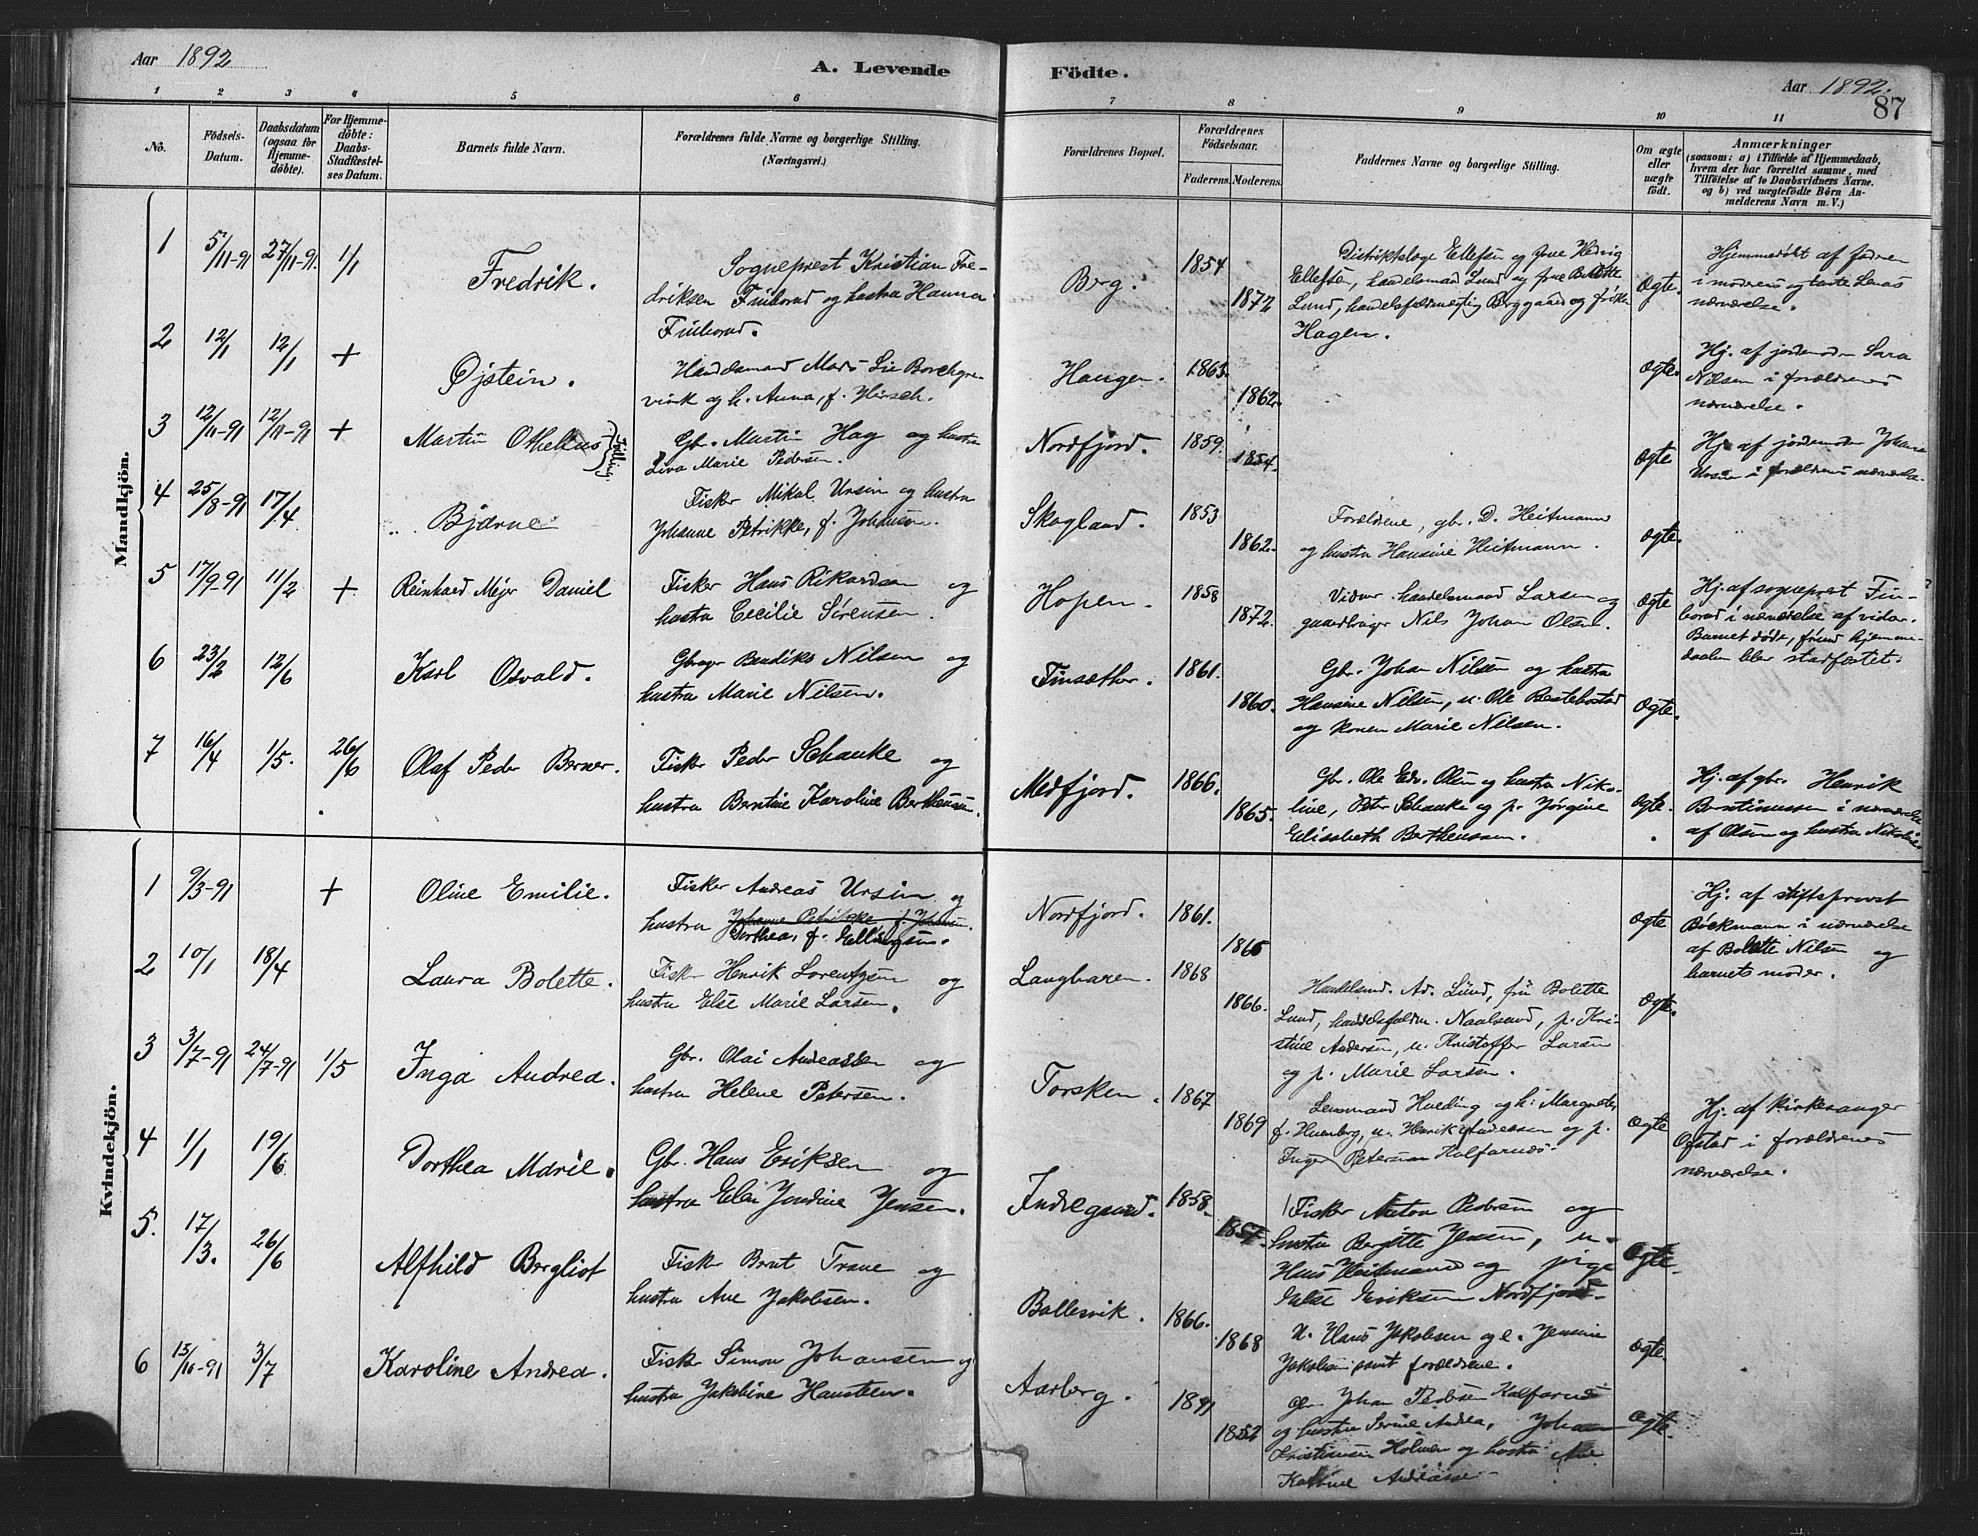 Aar 1892
A. Levende Födte.
Aar 1892.
87
1 2 3 4 5 6 7 8 9 10 11
No.
Födsels-
Datum.
Daabsdatum
(ogsaa for
Hjemme-
döbte).
For Hjemme-
döbte:
Daabs-
Stadfæstel-
ses Datum.
Barnets fulde Navn.
Forældrenes fulde Navne og borgerlige Stilling.
(Næringsvei.)
Forældrenes Bopæl.
Forældrenes
Födselsaar.
Faderens. Moderens.
Faddernes Navne og borgerlige Stilling.
Om ægte
eller
uægte
födt.
Anmærkninger
(saasom: a) i Tilfælde af Hjemmedaab,
hvem der har forrettet samme, med
Tilföielse af to Daabsvidners Navne.
og b) ved uægtefödte Börn An-
melderens Navn m. V.)
Mandkjön.
1 5/11-91 27/11-91. 1/1
Fredrik.
Sogneprest Kristian Fre-
driksen Finborud og hustru Hanna
Finborud.
Berg.
1854
1872
Distriktslæge Ellefsen og frue Hedvig
Ellefsen, handelsmand Lund og frue Bolette
Lund, handelsfuldmægtig Byggaard og frøken
Hagen.
Ægte.
Hjemmedøbt af faderen
i moderens og tante Lenas
nærværelse.
2 12/1 12/1 +
Øjstein.
Handelsmand Mads Lie Borchgre-
vink og h. Anna, f. Hirsch.
Haugen.
1863.
1862.
Ægte.
Hj. af jordemoder Sara
Nilsen i forældrenes
nærværelse.
3 12/11-91 12/11-91 +
Martin Othelius
Tvilling
Gbr. Martin Hag og hustru
Lova Marie Pedersen.
Nordfjord.
1859.
1854.
Ægte
Hj. af jordemoder Johanna
Ursin i forældrenes nærværelse.
4 25/8-91 17/4
Bjarne
Fisker Mikal Ursin og hustru
Johanne Petrikke, f. Johansen.
Skogland.
1853
1862.
Forældrene, gbr. D. Heitmann
og hustru Hansine Heitmann.
Ægte.
5 17/9-91 11/2 +
Reinhard Mejer Daniel
Fisker Hans Rikardsen og
hustru Cecilie Sörensen.
Hopen.
1858
1872.
Vidner handelsmand Larsen og
gaardbruger Nils Johan Olsen.
Ægte
Hj. af sogneprest Fin-
borud i nærværelse af vidner.
Barnet døde, førend hjemme-
daaben blev stadfæstet.
6 23/2 12/6
Karl Osvald.
Gbruger Bendiks Nilsen og
hustru Marie Nilsen.
Finsæther.
1861.
1860.
Gbr. Johan Nilsen og hustru
Hansine Nilsen, u. Ole Bestebostad
og konen Marie Nilsen.
Ægte.
7 16/4 1/5. 26/6
Olaf Peder Berner.
Fisker Peder Schanke og
hustru Berntine Karoline Bertheussen.
Medfjord.
1866.
1865.
Gbr. Ole Edv. Olsen og hustru Niko-
line, Peter Schanke og p. Jørgine
Elisabeth Bertheussen.
Ægte.
Hj. af gbr. Henrik
Berntinussen i nærværelse
af Olsen og hustru Nikoline.
Kvindekjön.
1 9/3-91 +
Oline Emilie.
Fisker Andreas Ursin og
hustru Johanne Petrikke f. Johansen.
Dorthea, f. Ellingsen.
Nordfjord.
1861.
1865
Ægte
Hj. af stiftsprovst
Böckmann i nærværelse
af Bolette Nilsen og
barnets moder.
2 10/1 18/4
Laura Bolette.
Fisker Henrik Lorentzen og
hustru Else Marie Larsen.
Langbaren.
1868
1866.
Handelsmd. Ad. Lund, frü Bolette
Lund, handelsfuldm. Naalsund, p. Kri-
stine Andersen, u. Kristoffer Larsen
og p. Marie Larsen.
Ægte.
3 3/7-91 24/7-91 1/5
Inga Andrea.
Gbr. Olai Andreassen og
hustru Helene Petersen.
Torsken.
1867
1869
Lensmand Hveding og h. Margrete
f. Husberg, u. Henrik Andreassen og p.
Inger Petersen Kalfarnes.
Ægte
Hj. af kirkesanger
Ofstad i forældrenes
nærværelse.
4 1/1 19/6
Dorthea Marie.
Gbr. Hans Eriksen og
hustru Elen Jendine Jensen.
Indregaard.
1858.
1857.
Fisker Anton Pedersen og
hustru Bergitte Jensen, u.
Hans Heitmann og pige
Else Eriksen Nordfjord.
Ægte.
5. 17/3. 26/6
Alfhild Bergliot
Fisker Bernt Trane og
hustru Ane Jakobsen.
Ballesvik.
1866.
1868
U. Hans Jakobsen og e. Jensine
Jakobsen samt forældrene.
Ægte
6 15/10-91 3/7
Karoline Andrea.
Fisker Simon Johansen og
hustru Jakobine Hansteen.
Aarberg.
1852
Gbr Johan Pedersen Kalfarnes
og hustru Serine Andrea, Johan
Kristiansen Holmen og hustru Ane
Katrine
Ægte.